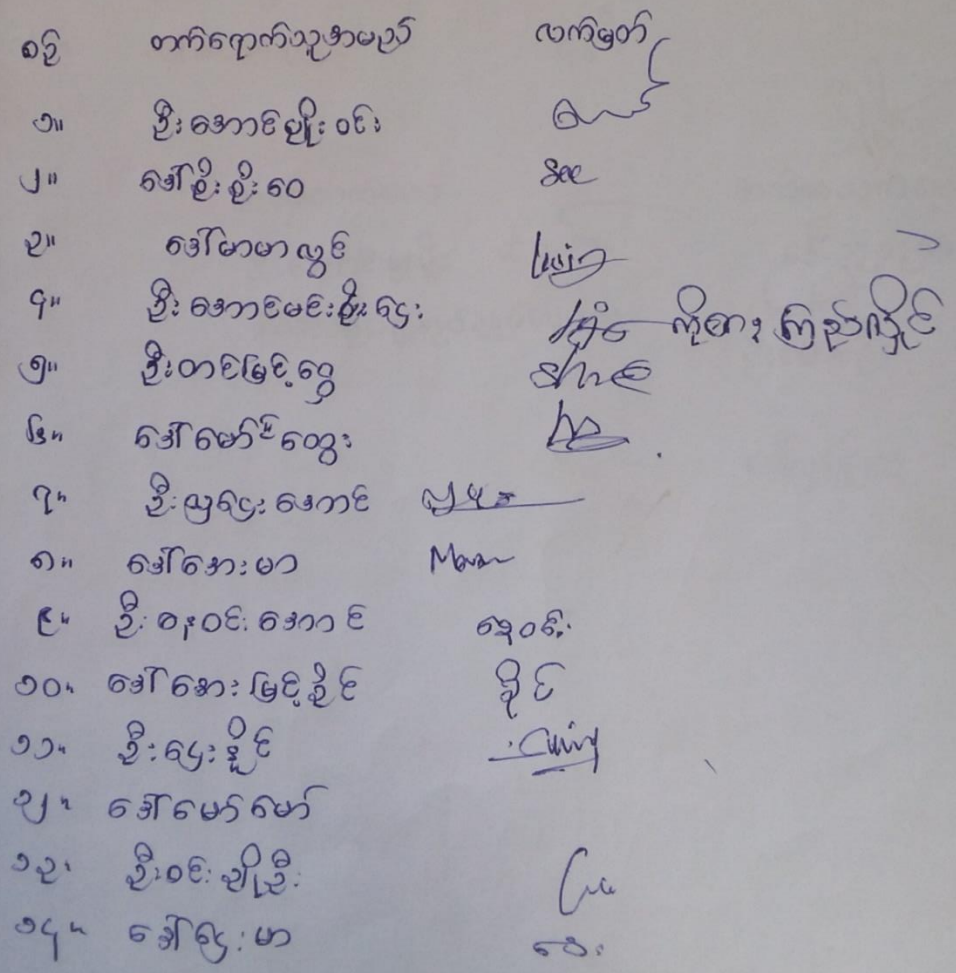 စဉ် တက်ရောက်သူအမည် လက်မှတ်
၁။ ဦးအောင်မျိုးဝင်း
၂။ ဒေါ်စိုးစိုးဝေ See
၃။ ဒေါ်မာမာလွင် Lwin
၄။ ဦးအောင်မင်းစိုးဌေး ကိုယ်စား ကြည်လှိုင်
၅။ ဦးတင်မြင့်ဆွေ
၆။ ဒေါ်မော်မော်ထွေး
၇။ ဦးလှဌေးအောင်
၈။ ဒေါ်အေးမာ
၉။ ဦးစန်းဝင်းအောင် နေဝင်း
၁၀။ ဒေါ်အေးမြင့်ခိုင် ခိုင်
၁၁။ ဦးဌေးနိုင်
၁၂။ ဒေါ်မော်မော်
၁၃။ ဦးဝင်းမျိုးဦး
၁၄။ ဒေါ်ဌေးမာ